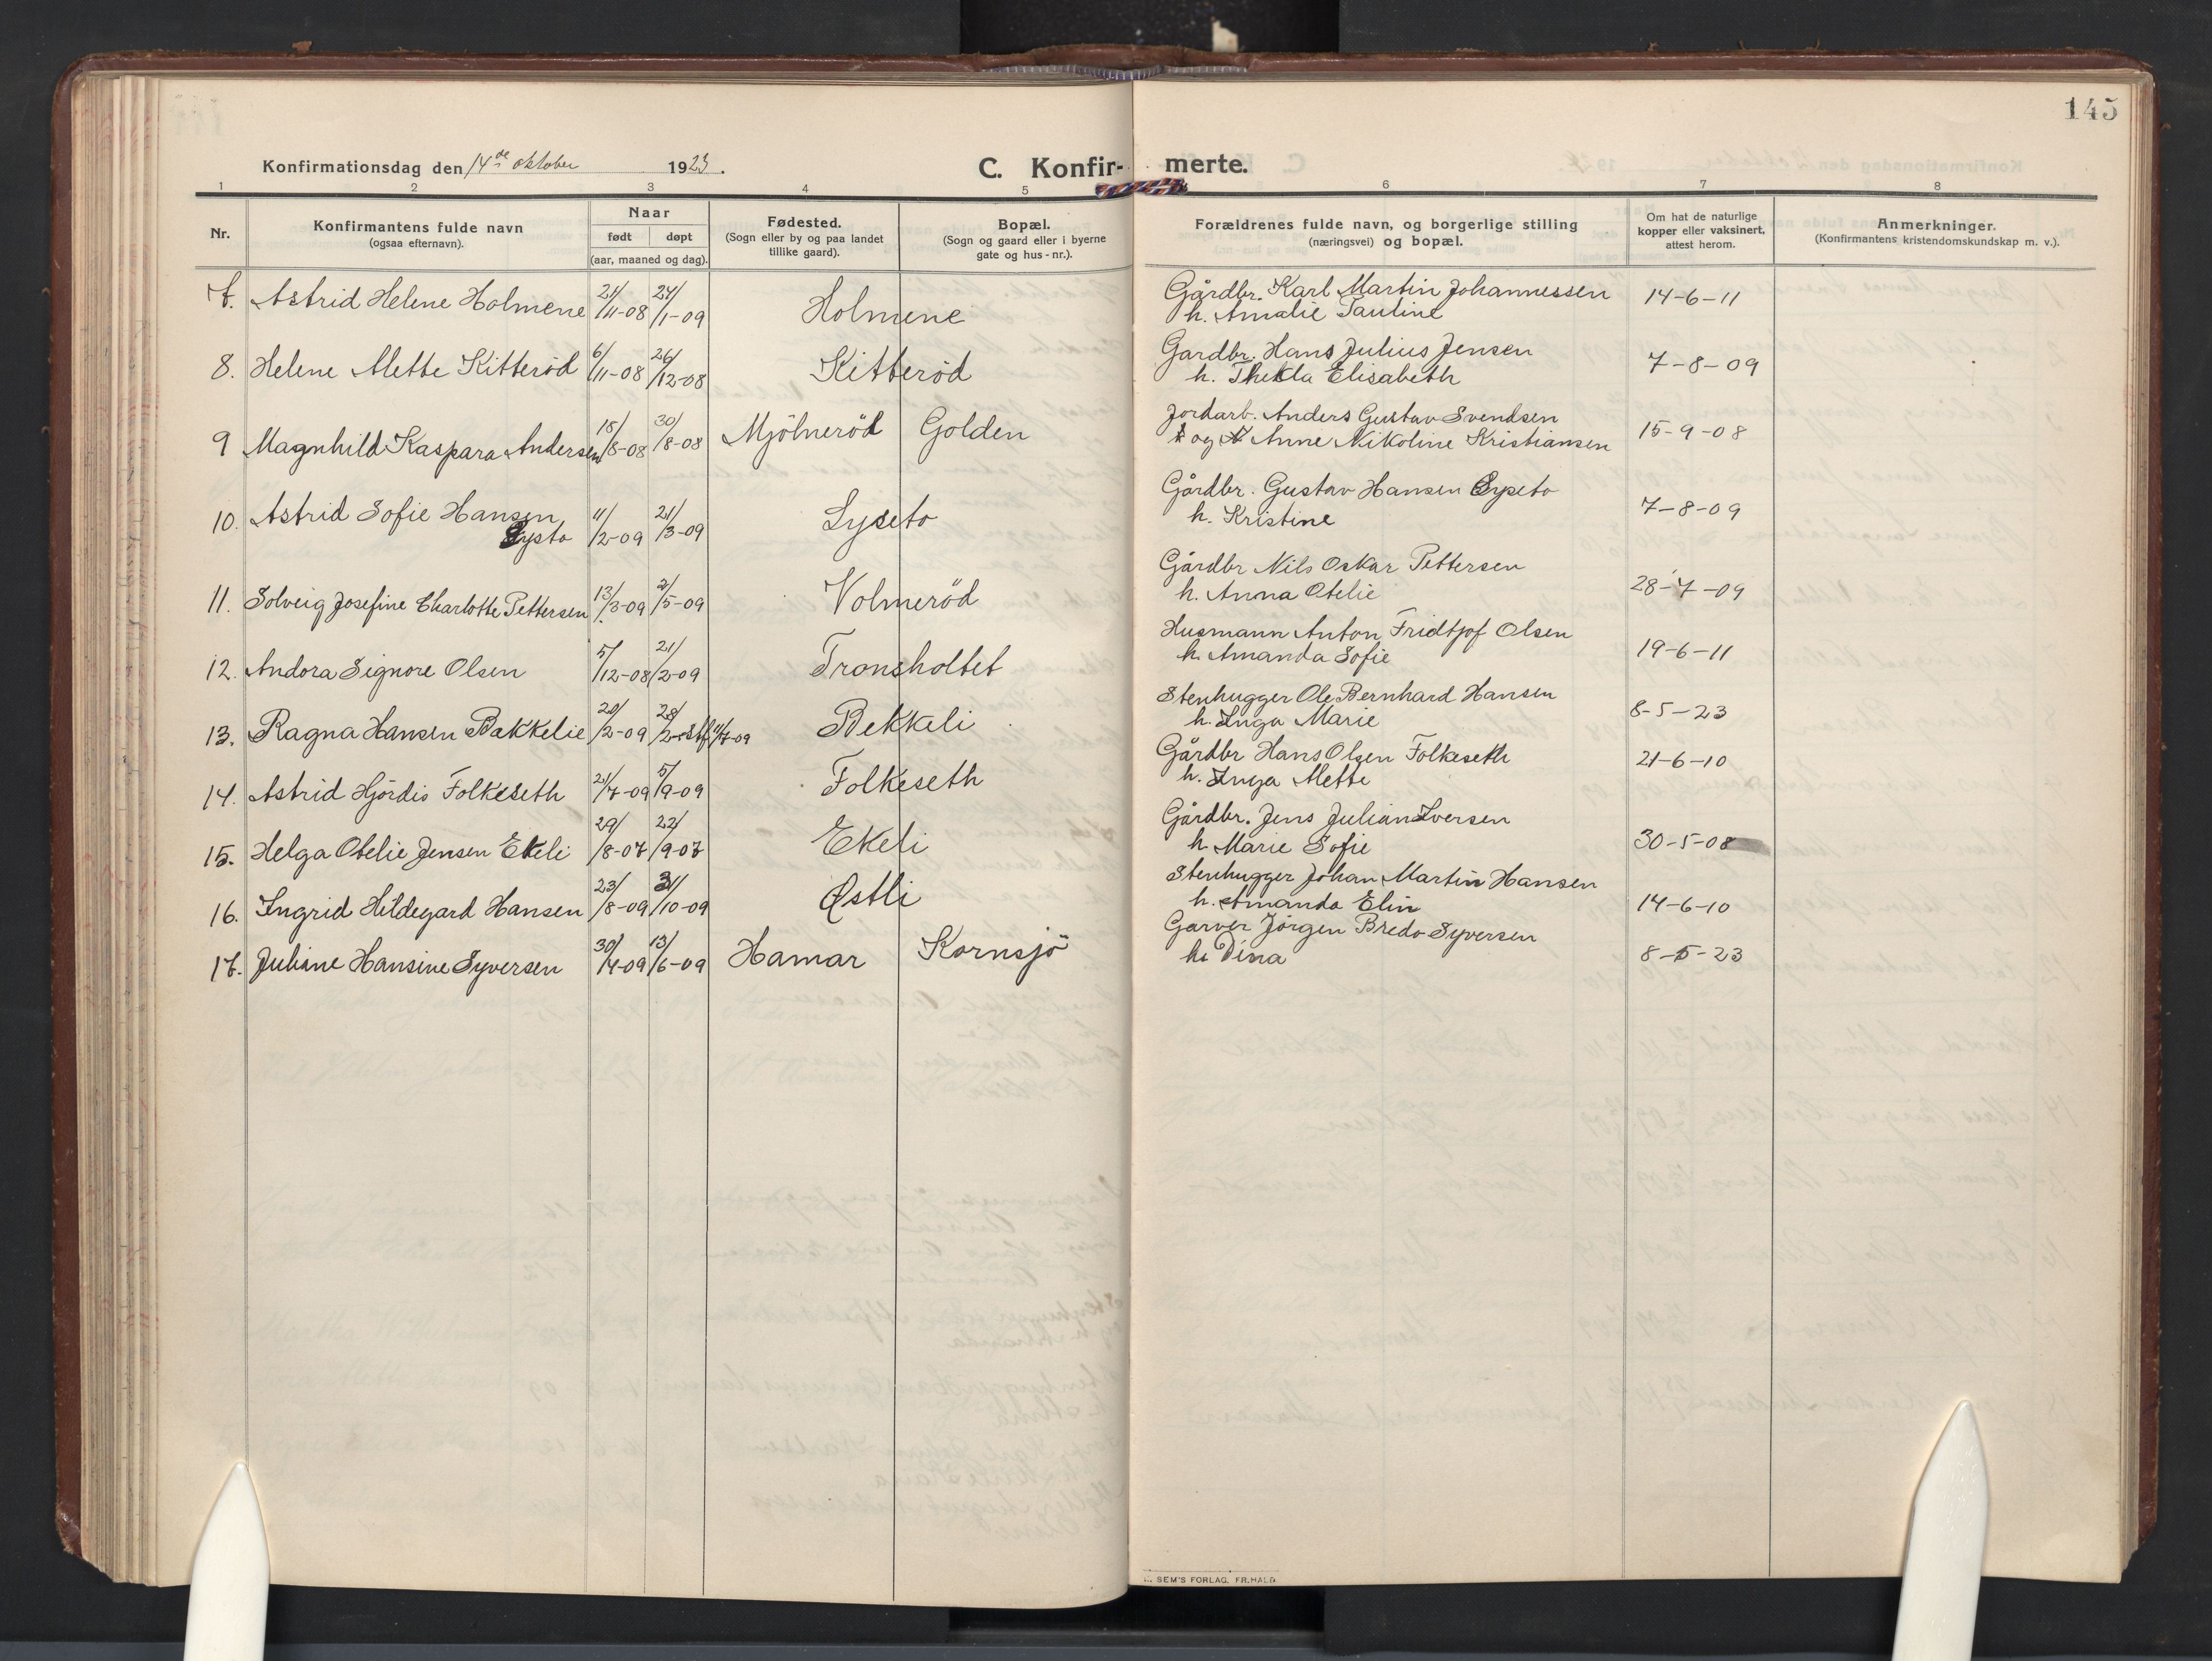 145
Konfirmationsdag den 14de oktober 1923.
C. Konfir- merte.
1 2 3 4 5 6 7 8
Nr.
Konfirmantens fulde navn
(ogsaa efternavn).
Naar
født døpt
(aar, maaned og dag).
Fødested.
(Sogn eller by og paa landet
tillike gaard).
Bopæl.
(Sogn og gaard eller i byerne
gate og hus-nr.).
Forældrenes fulde navn, og borgerlige stilling
(næringsvei) og bopæl.
Om hat de naturlige
kopper eller vaksinert,
attest herom.
Anmerkninger.
(Konfirmantens kristendomskundskap m. v.).
7. Astrid Helene Holmene 21/11-08 24/1-09 Holmene Gårdbr. Karl Martin Johannessen 14-6-11
h. Amalie Pauline
8. Helene Mette Kitteröd 6/11-08 26/12-08 Kitteröd Gardbr. Hans Julius Jensen 7-8-09
h. Thekla Elisabeth
9 Magnhild Kaspara Andersen 18/8-08 30/8-08 Mjölneröd Golden Jordarb. Anders Gustav Svendsen 15-9-08
og Anne Nikoline Kristiansen
10. Astrid Sofie Hansen 11/2-09 21/3-09 Lyseto Gårdbr. Gustav Hansen Lyseto 7-8-09
Lysto h. Kristine
11. Solveig Josefine Charlotte Pettersen 13/3-09 2/5-09 Volmeröd Gårdbr Nils Oskar Pettersen 28-7-09
h. Anna Otelie
12. Andora Signore Olsen 5/12-08 21/2-09 Tronsholtet Husmann Anton Fridtjof Olsen 19-6-11
h. Amanda Sofie
13. Ragna Hansen Bakkelie 20/2-09 28/2- stf 11/7-09 Bekkeli Stenhugger Ole Bernhard Hansen 8-5-23
h. Inga Marie
14. Astrid Hjördis Folkeseth 21/7-09 5/9-09 Folkeseth Gårdbr Hans Olsen Folkeseth 21-6-10
h. Inga Mette
15. Helga Otelie Jensen Ekeli 29/8-07 22/9-07 Ekeli Gårdbr. Jens Julian Iversen 30-5-08
h. Marie Sofie
16. Ingrid Hildegard Hansen 23/8-09 31/10-09 Østli Stenhugger Johan Martin Hansen 14-6-10
h. Amanda Elin
17. Juliane Hansine Syversen 30/4-09 13/6-09 Hamar Kornsjö Garver Jörgen Bredo Syversen 8-5-23
h. Dina
SEM'S FORLAG, FR.HALD